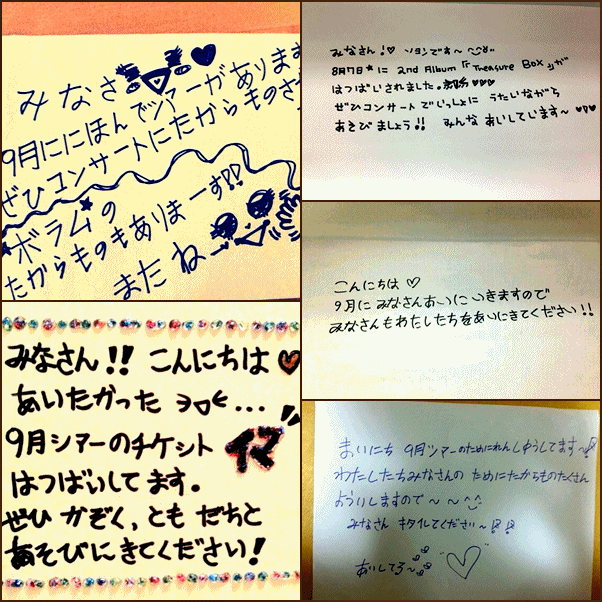 みなさ
9月ににほんでツアーがありま
ぜひコンサートにたからものさ
ボラムの
たからものもありまーす!!
またねー
みなさん!♡ ソヨンです〜
8月7日*に 2nd Album『Treasure Box』が
はつばいされました。♡♡♡
ぜひコンサートでいっしょに うたいながら
あそび ましょう!! みんな あいしています〜 ♡♡♡
こんにちは ♡
9月に みなさんあいに いきますので
みなさんもわたしたちをあいにきてください!!
みなさん!! こんにちは ♡
あいたかった ...
9月ツアーのチケット イマ
はつばいしてます。
ぜひ かぞく,とも だちと
あそびにきてください!
まいにち 9月ツアーのためにれんしゅうしてます〜
わたしたちみなさんの ためにたからものたくさん
よういしますので〜〜^^
みなさん キタイしてください〜
あいしてる〜 ♡